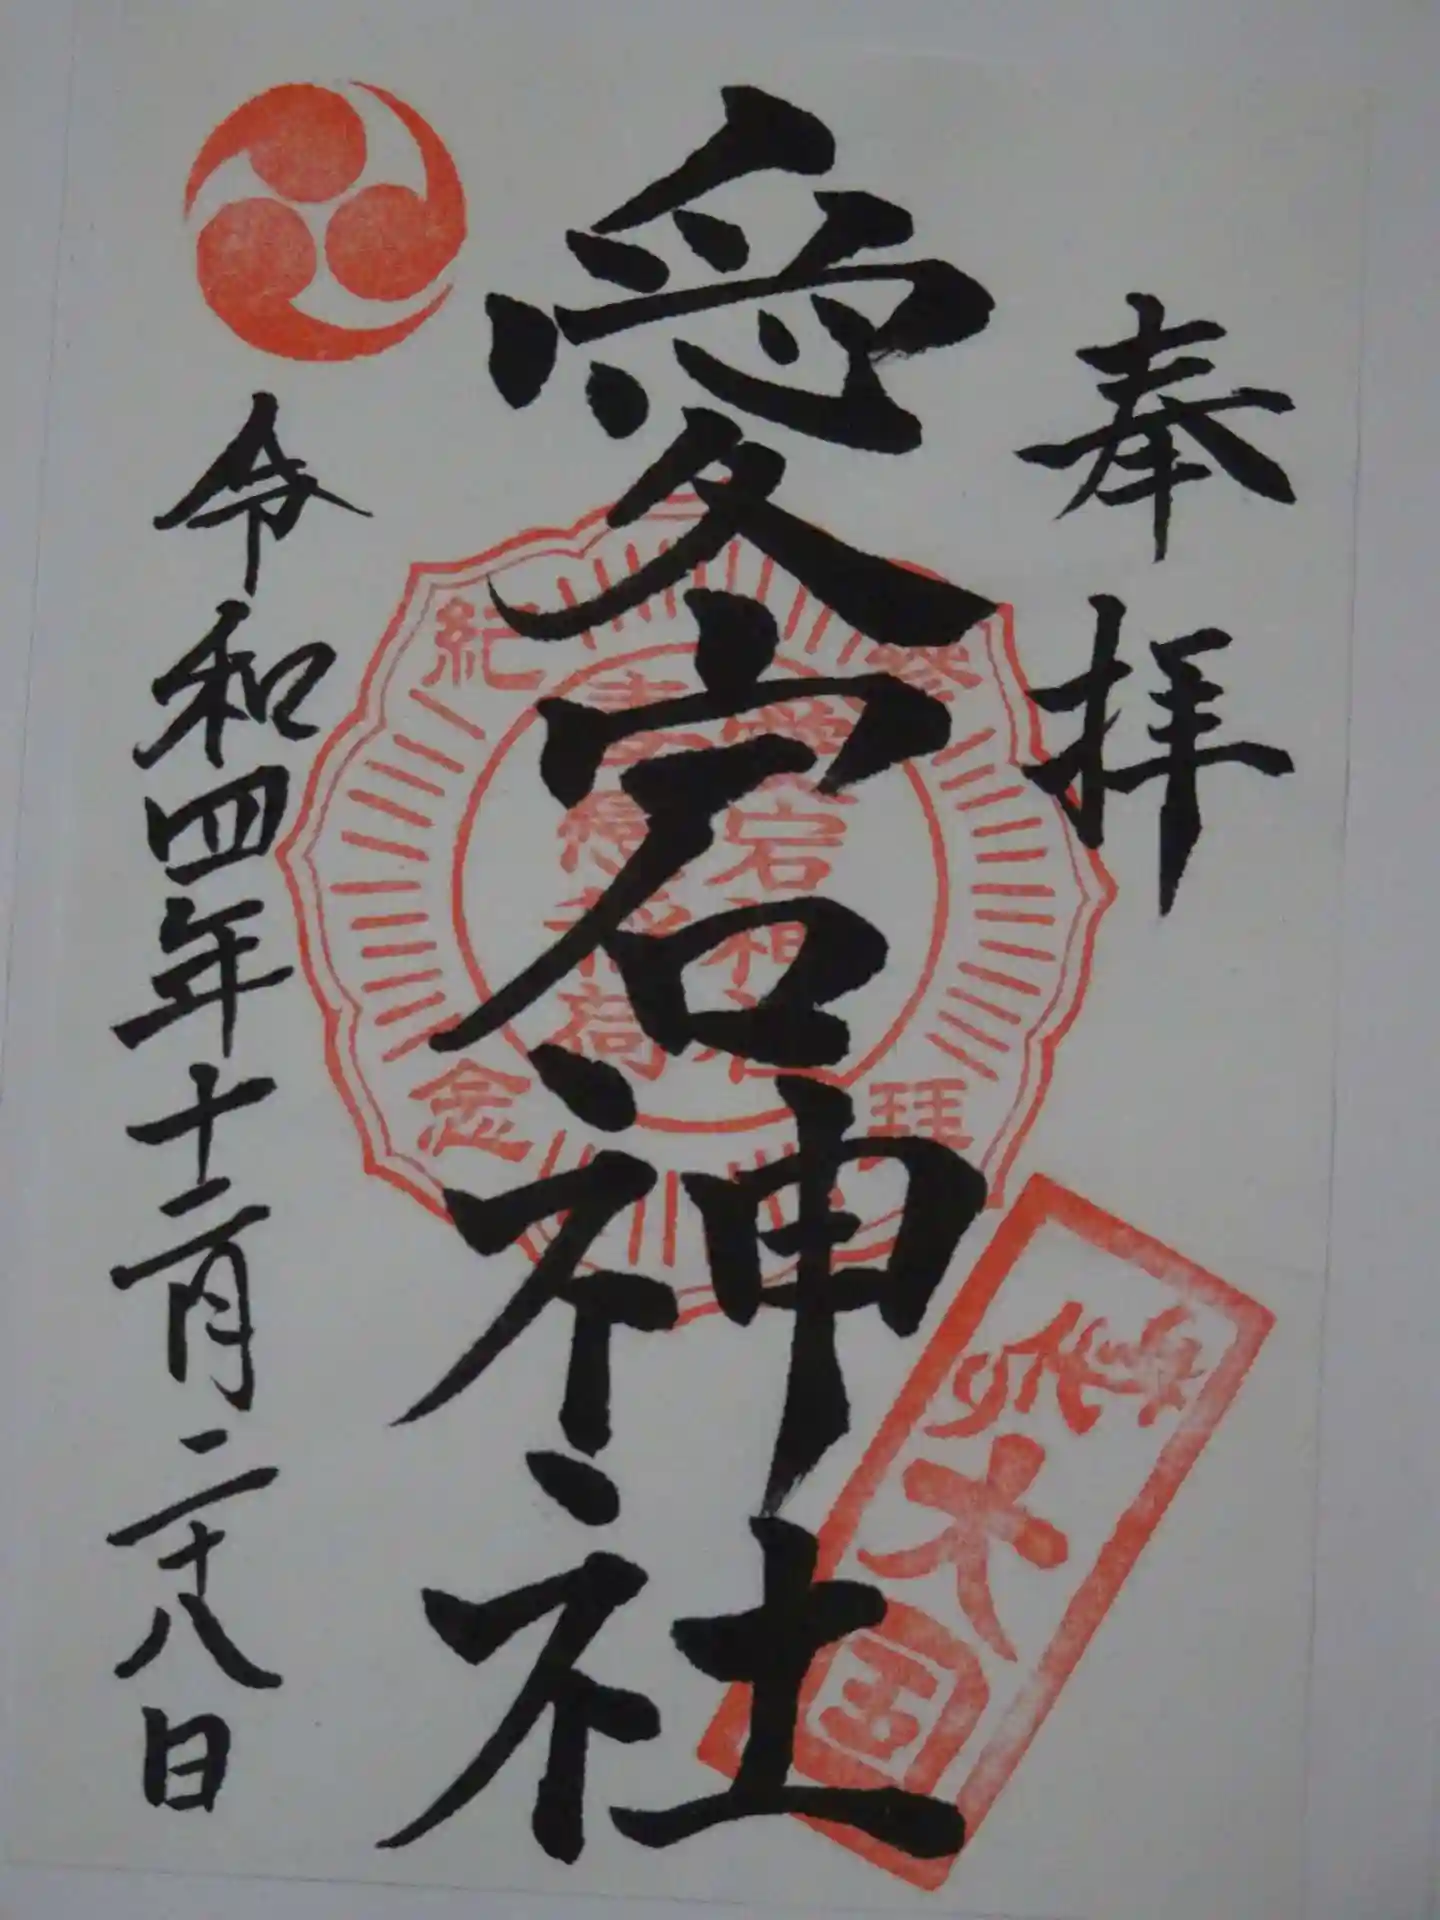 奉拝
愛宕神社
令和四年十二月二十八日
参拝
紀念
愛宕神社
稲荷
大国